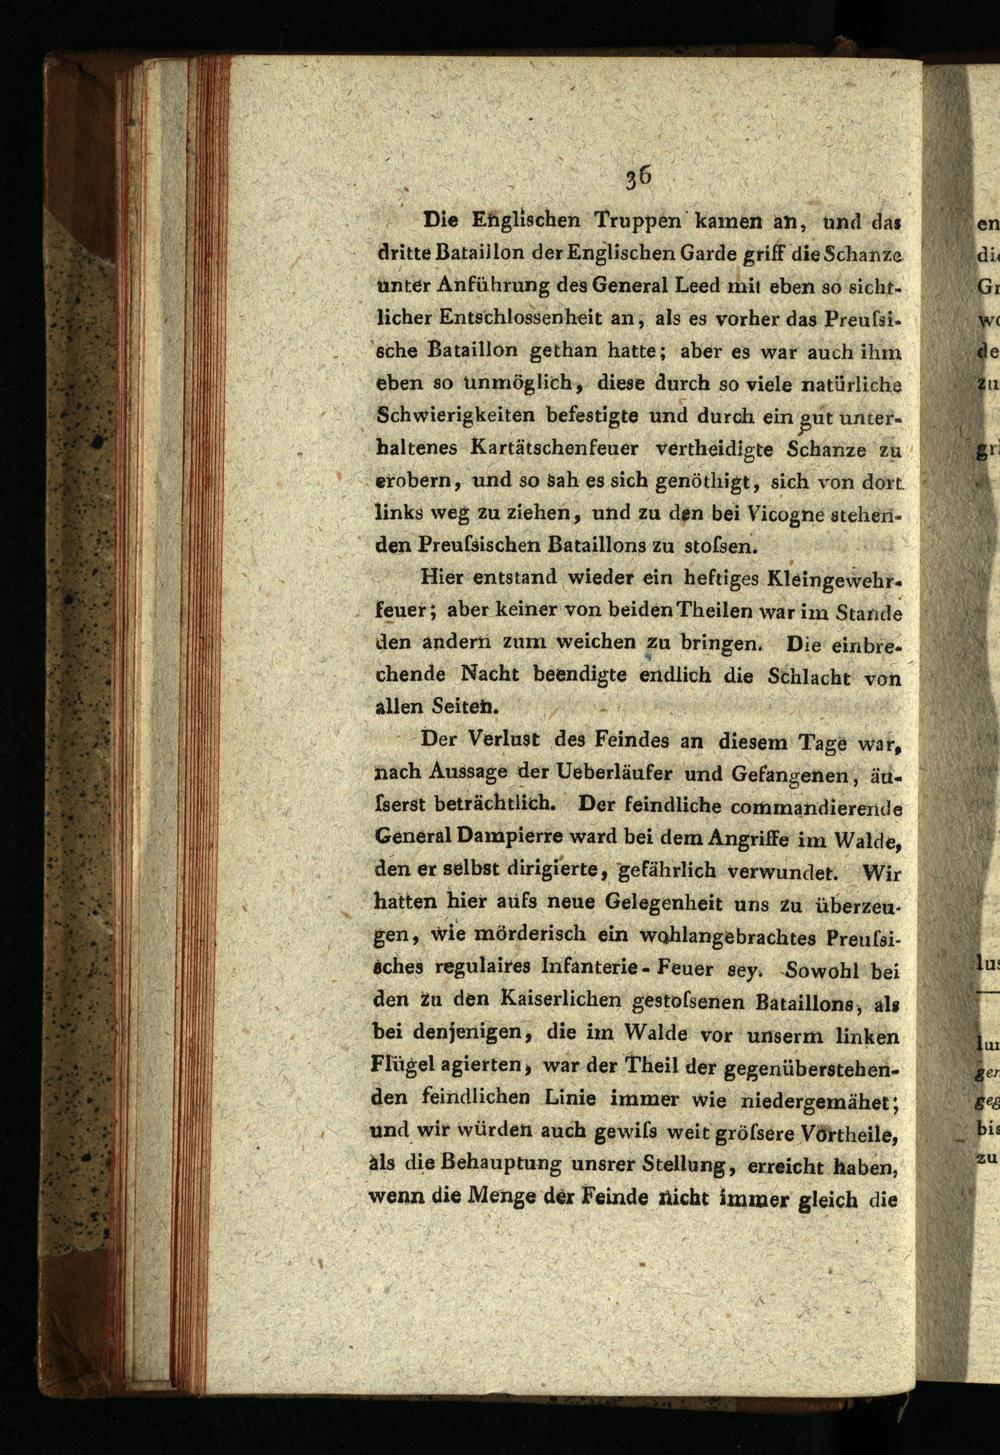 36
Die Englischen Truppen kamen an, und das
dritte Bataillon der Englischen Garde griff die Schanze
unter Anführung des General Leed mit eben so sicht-
licher Entschlossenheit an, als es vorher das Preuſsi-
sche Bataillon gethan hatte; aber es war auch ihm
eben so unmöglich, diese durch so viele natürliche
Schwierigkeiten befestigte und durch ein gut unter-
haltenes Kartätschenfeuer vertheidigte Schanze zu
erobern, und so sah es sich genöthigt, sich von dort
links weg zu ziehen, und zu den bei Vicogne stehen-
den Preuſsischen Bataillons zu stoſsen.
Hier entstand wieder ein heftiges Kleingewehr-
feuer; aber keiner von beiden Theilen war im Stande
den andern zum weichen zu bringen. Die einbre-
chende Nacht beendigte endlich die Schlacht von
allen Seiten.
Der Verlust des Feindes an diesem Tage war,
nach Aussage der Ueberläufer und Gefangenen, äu-
ſserst beträchtlich. Der feindliche commandierende
General Dampierre ward bei dem Angriffe im Walde,
den er selbst dirigierte, gefährlich verwundet. Wir
hatten hier aufs neue Gelegenheit uns zu überzeu-
gen, wie mörderisch ein wohlangebrachtes Preuſsi-
sches regulaires Infanterie-Feuer sey. Sowohl bei
den zu den Kaiserlichen gestoſsenen Bataillons, als
bei denjenigen, die im Walde vor unserm linken
Flügel agierten, war der Theil der gegenüberstehen-
den feindlichen Linie immer wie niedergemähet;
und wir würden auch gewiſs weit gröſsere Vortheile,
als die Behauptung unsrer Stellung, erreicht haben,
wenn die Menge der Feinde nicht immer gleich die